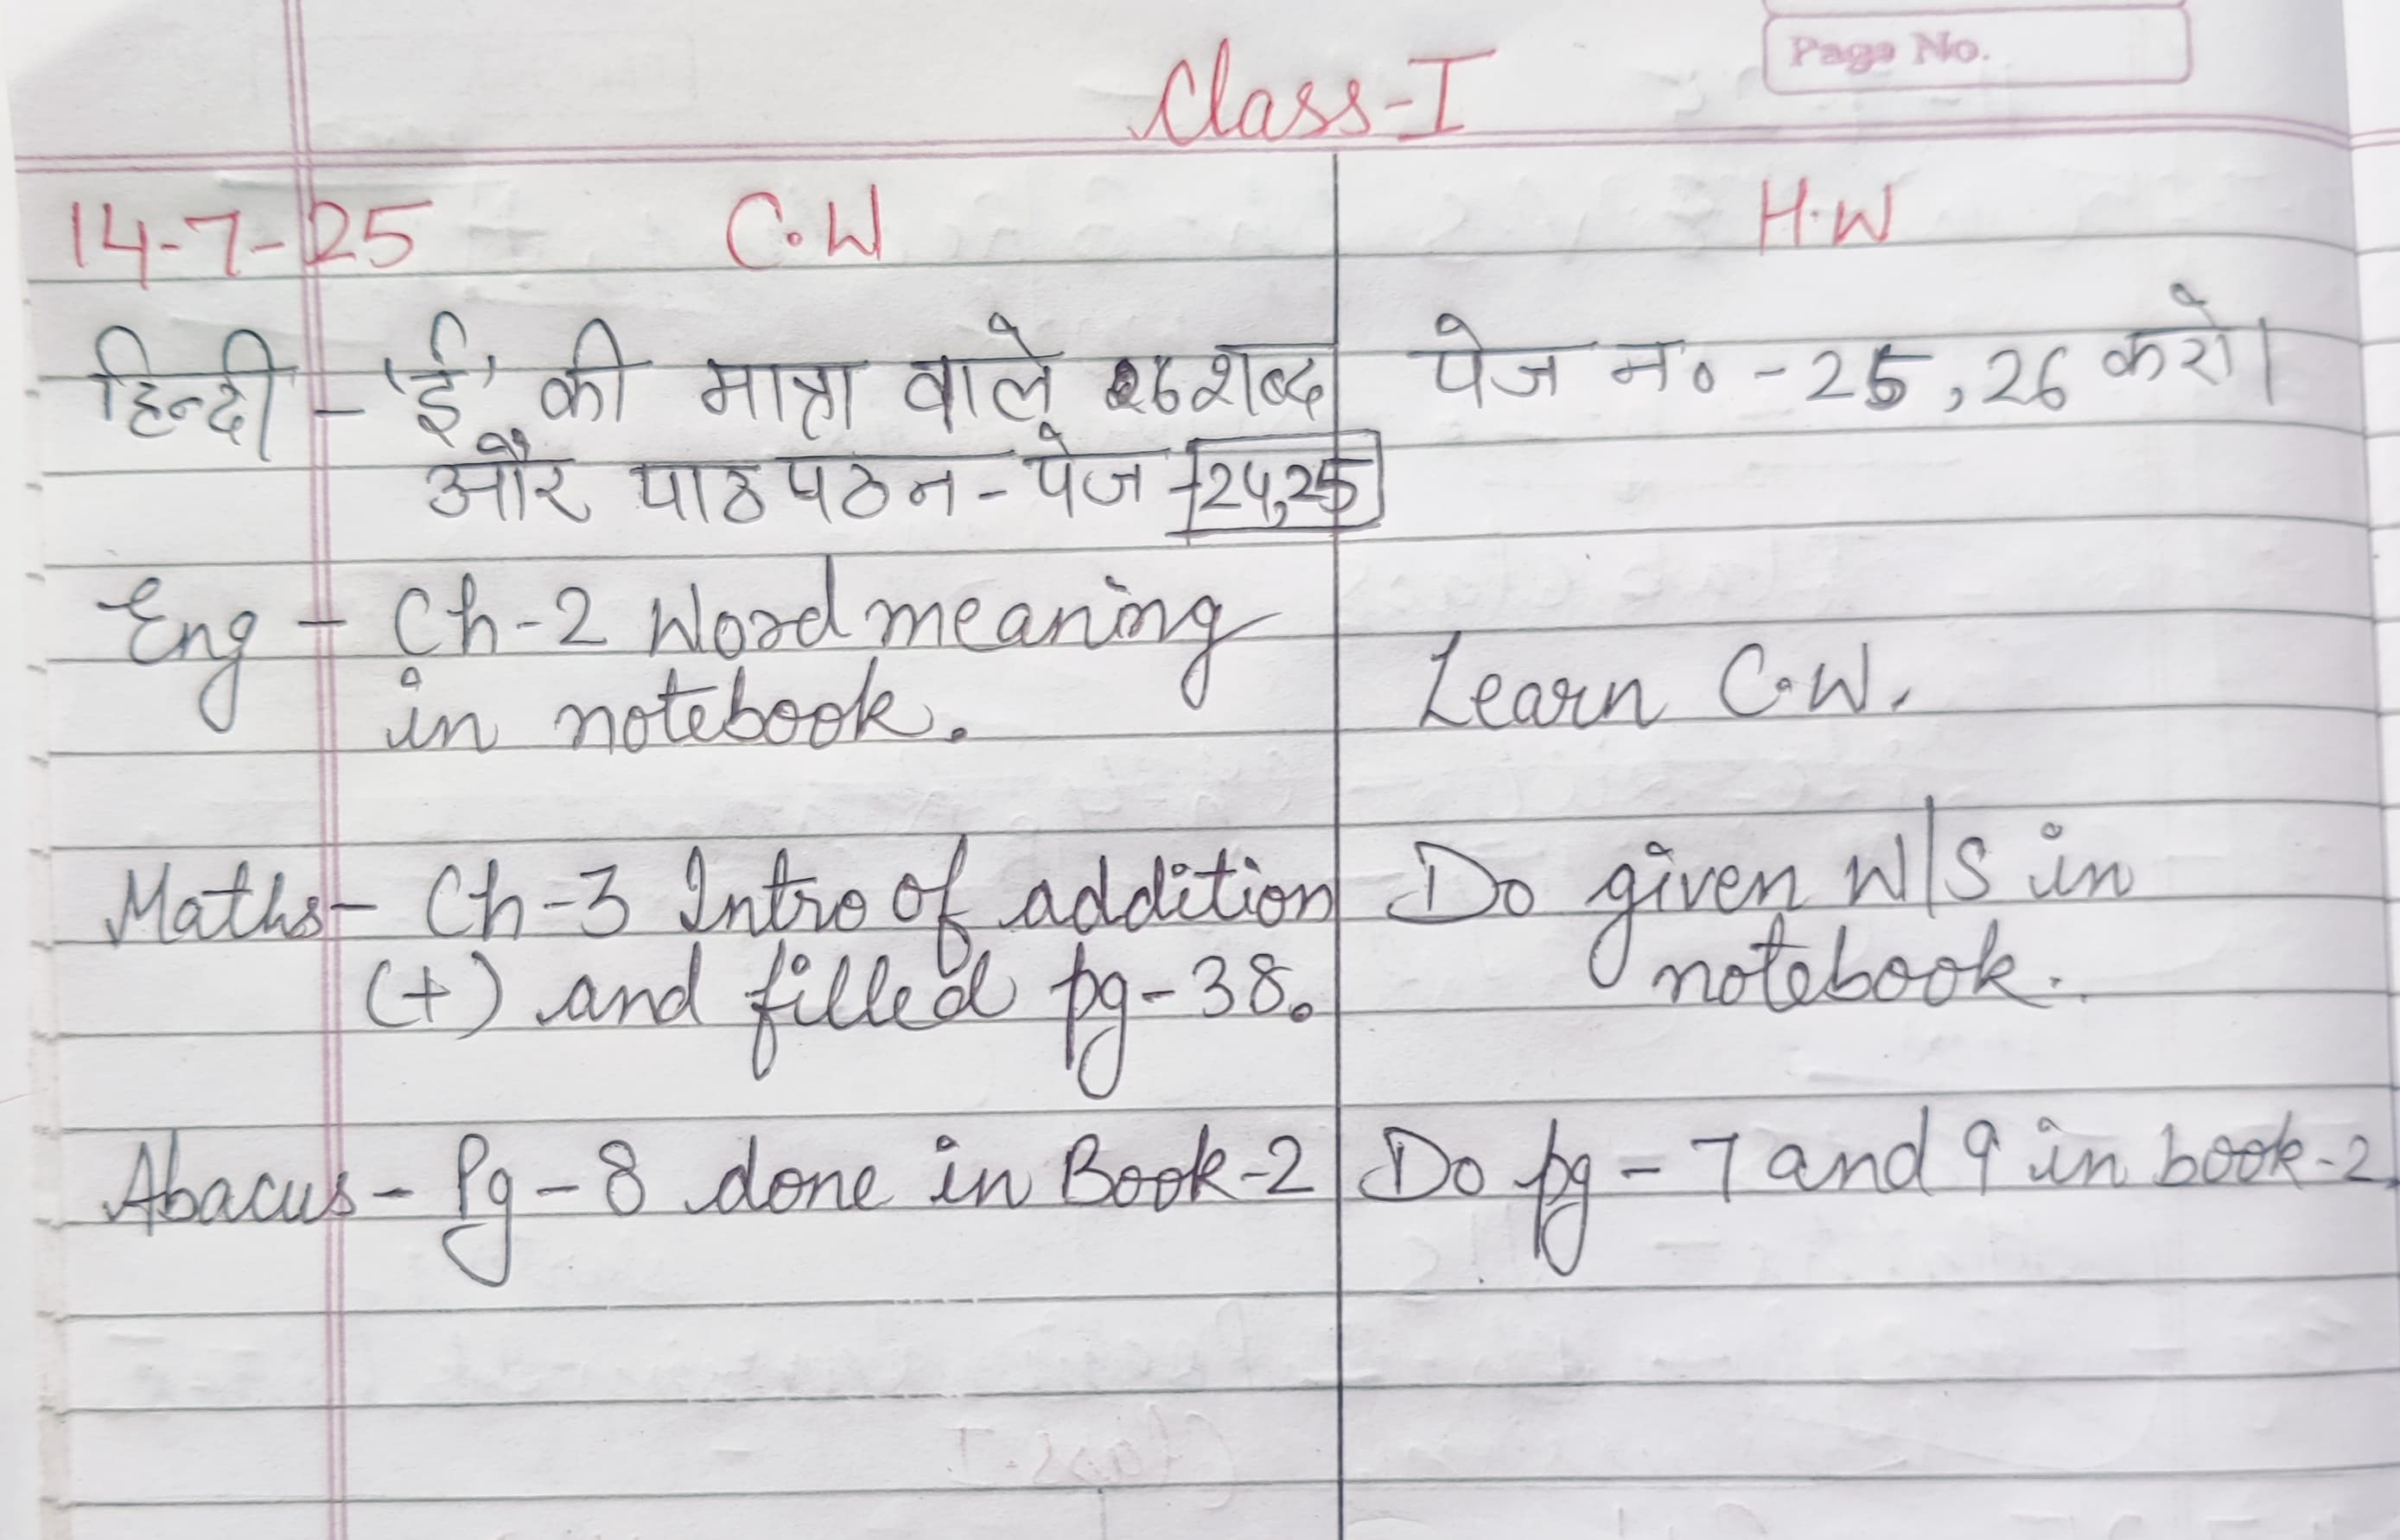 Page No.
Class-I
14-7-25 C.W H.W
हिन्दी - 'ई' की मात्रा वाले शब्द पेज न० - 25, 26 करो।
और पाठ पठन - पेज - 24,25
Eng - Ch-2 Word meaning
in notebook. Learn C.W.
Maths - Ch-3 Intro of addition Do given W/S in
(+) and filled pg-38. notebook.
Abacus - Pg-8 done in Book-2 Do pg-7 and 9 in book-2